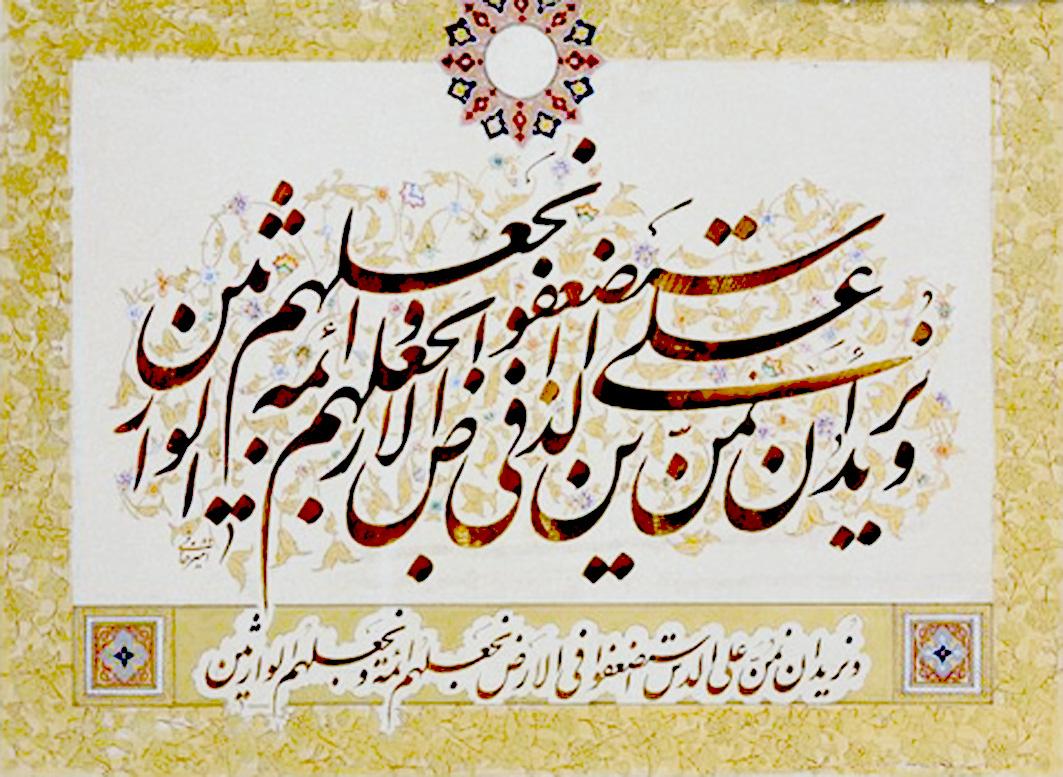 و نرید ان نمنّ علی الذین استضعفوا فی الارض نجعلهم ائمه و نجعلهم الوارثین
و نرید ان نمنّ علی الذین استضعفوا فی الارض نجعلهم ائمة و نجعلهم الوارثین